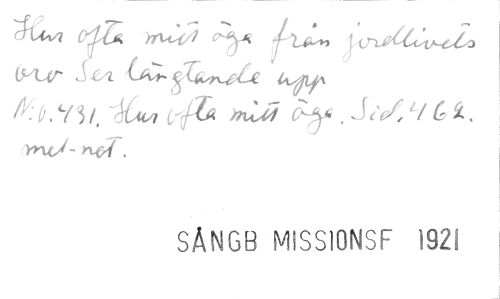 Hur ofta mitt öga från jordlivets
oro Ser längtande upp
N:o.431. Hur ofta mitt öga. Sid. 462.
met-not.
SÅNGB MISSIONSF 1921